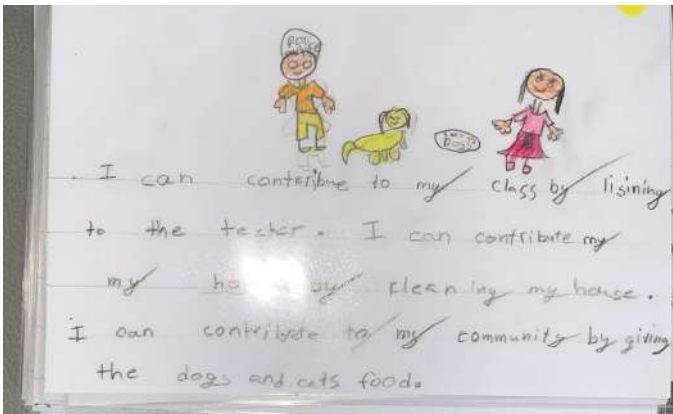 POLICE
DOGS
. I can conterjbue to my class by lisining
to the techer. I can contribute my
my by cleaning my house.
I can contribute to my community by giving
the dogs and cats food.